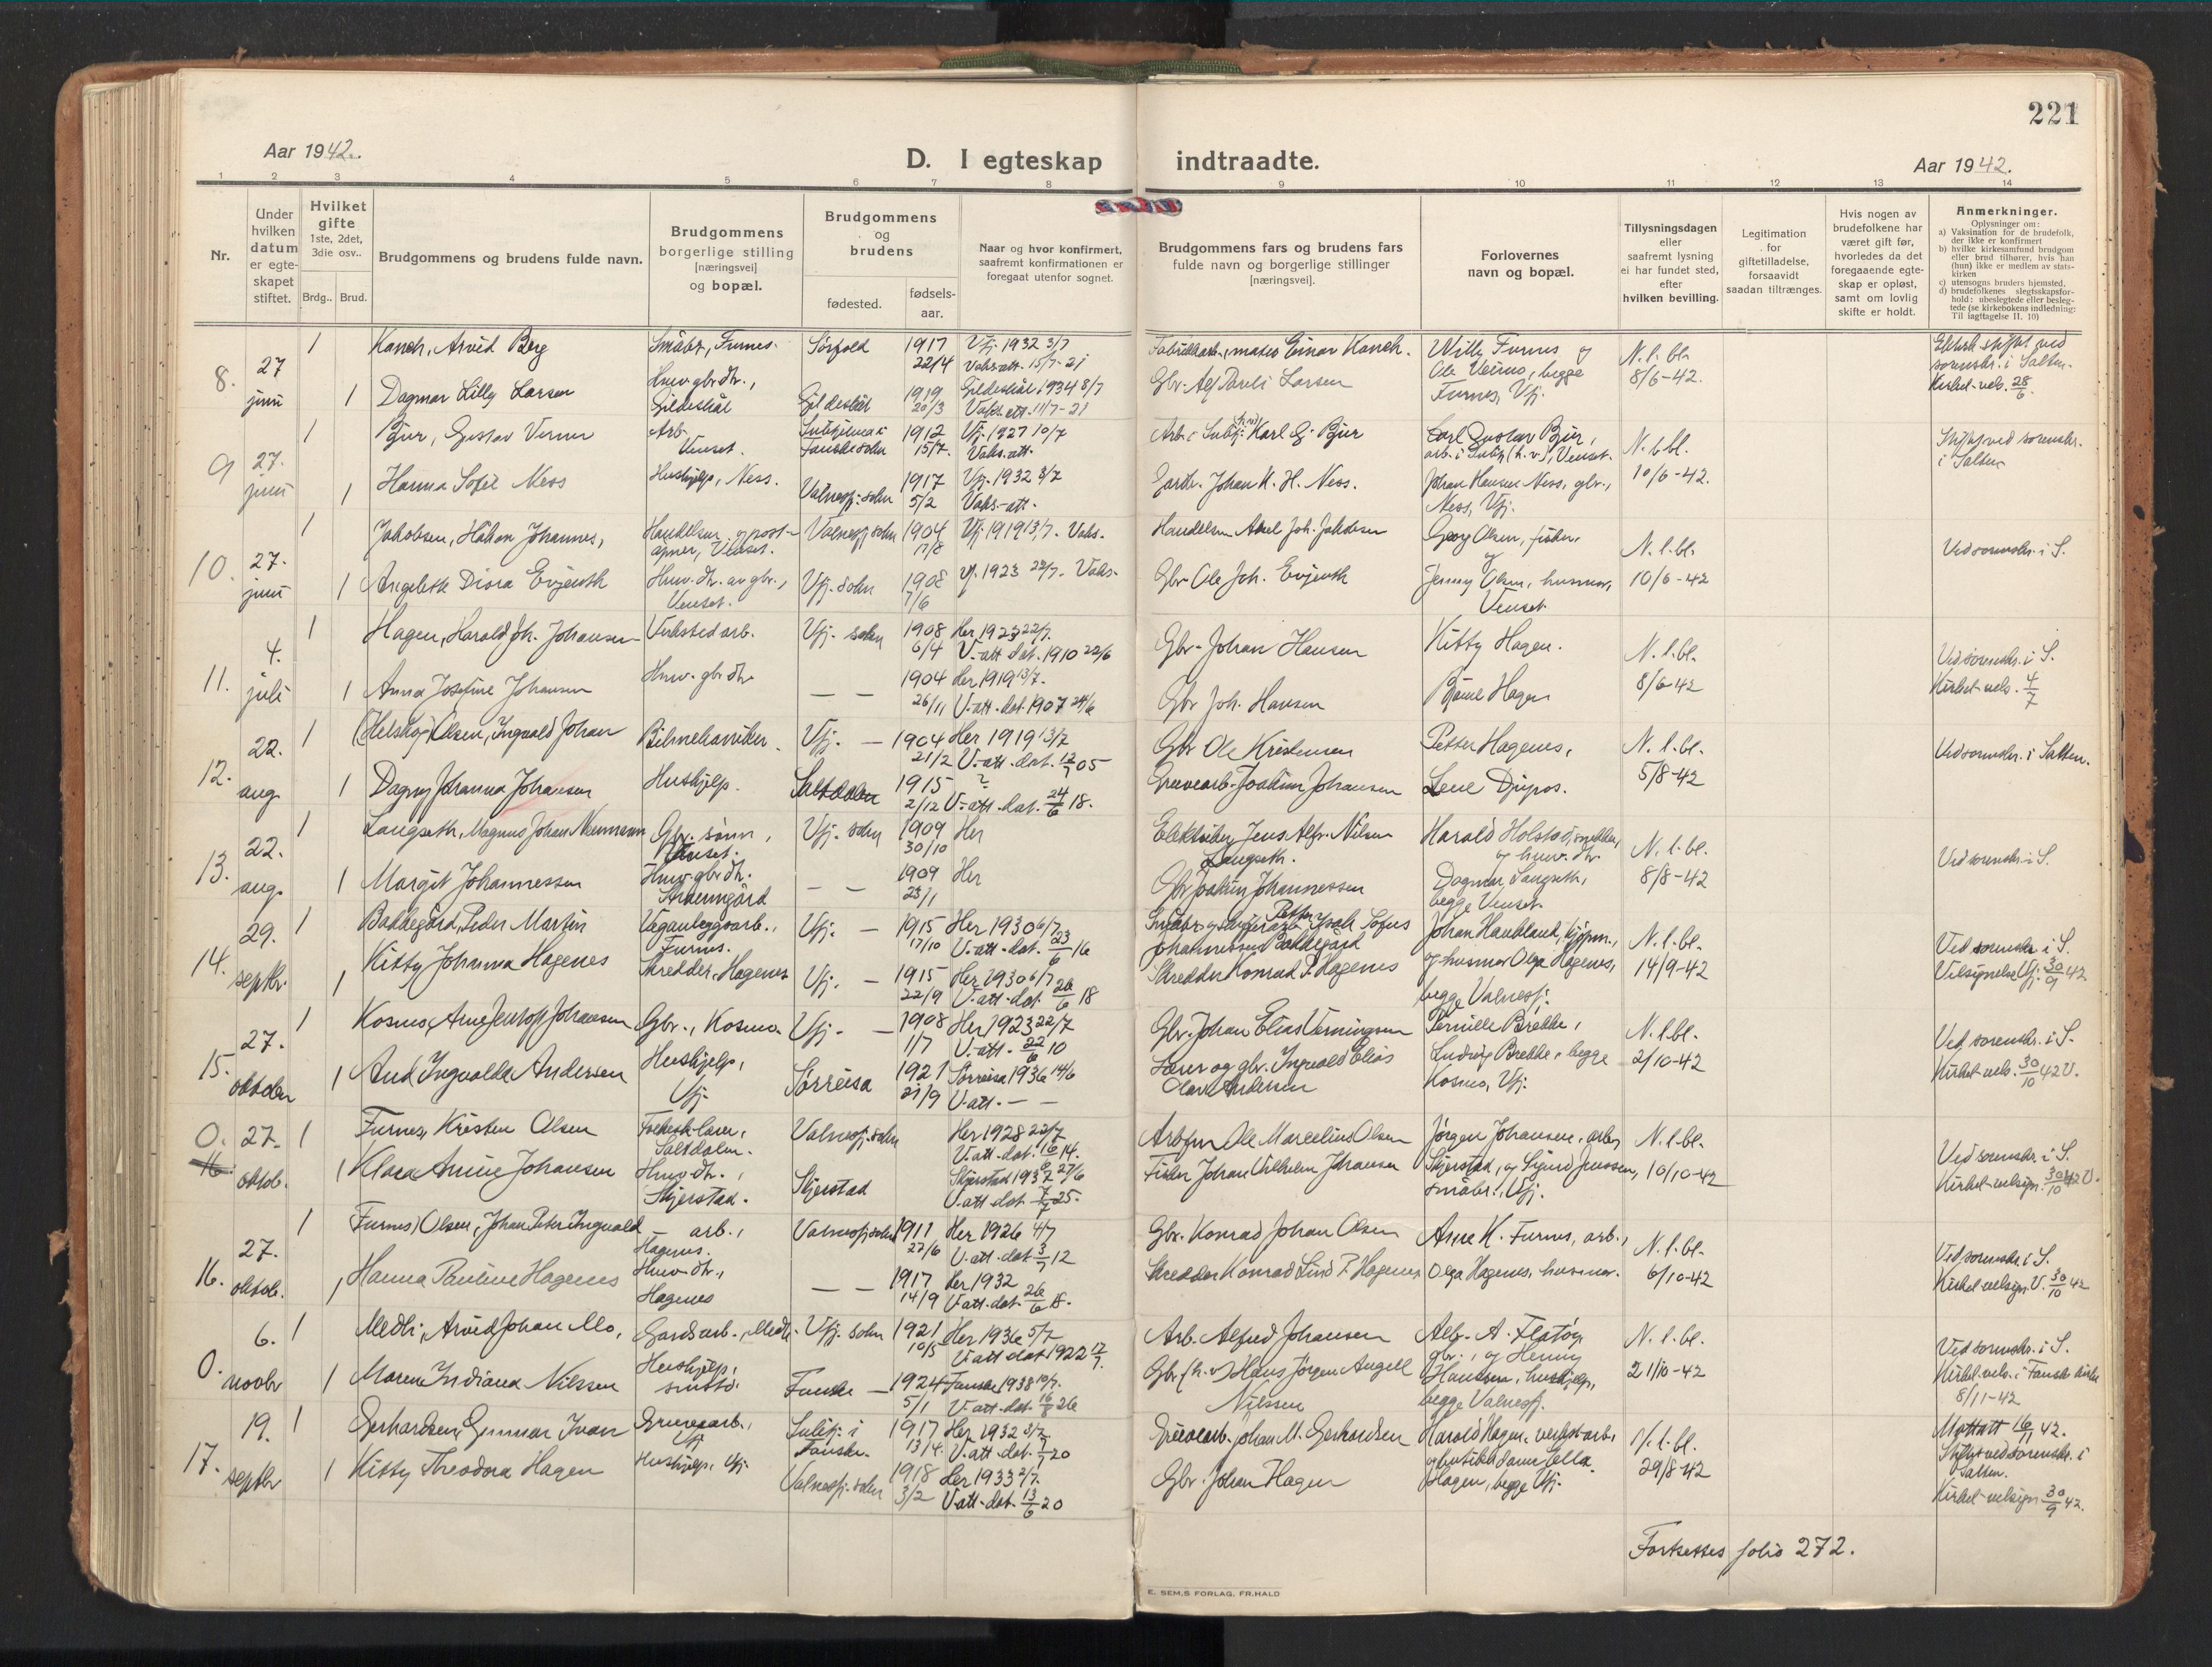 221
Aar 1942.
D. I egteskap indtraadte.
Aar 1942.
1 2 3 4 5 6 7 8 9 10 11 12 13 14
Nr.
Under hvilken datum er egteskapet stiftet.
Hvilket gifte 1ste, 2det, 3die osv..
Brdg.. Brud.
Brudgommens og brudens fulde navn.
Brudgommens borgerlige stilling [næringsvei] og bopæl.
Brudgommens og brudens
fødested.
fødsels-aar.
Naar og hvor konfirmert, saafremt konfirmationen er foregaat utenfor sognet.
Brudgommens fars og brudens fars fulde navn og borgerlige stillinger [næringsvei].
Forlovernes navn og bopæl.
Tillysningsdagen eller saafremt lysning ei har fundet sted, efter hvilken bevilling.
Legitimation for giftetilladelse, forsaavidt saadan tiltrænges.
Hvis nogen av brudefolkene har været gift før, hvorledes da det foregaaende egteskap er opløst, samt om lovlig skifte er holdt.
Anmerkninger.
Oplysninger om:
a) Vaksination for de brudefolk, der ikke er konfirmert
b) hvilke kirkesamfund brudgom eller brud tilhører, hvis han (hun) ikke er medlem av statskirken
c) utensogns bruders hjemsted.
d) brudefolkenes slegtsskapsforhold: ubeslegtede eller beslegtede (se kirkebokens indledning: Til iagttagelse II. 10)
8. 27 juni
1 Kanch, Arvid Berg Småbr, Furnes. Sørfold 1917 22/4 Vfj. 1932 3/7 Vaks.att. 15/7-21
Einar Kanch. Willy Furnes og Ole Veines, begge Furnes, Vfj. N. l. bl. 8/6-42.
sorenskr. i Salten. Kirkel. vels. 28/6
1 Dagmar Lilly Larsen Hmv. gbr. dtr., Gildeskål Gildeskål 1919 20/3 Gildeskål 1934 8/7 Vaks.att. 11/7-21
Gbr. Alf Pareli Larsen
9 27. juni
1 Bjur, Gustav Verner Arb. Venset. Sulitjelma i Fauske sokn 1912 15/7. Vfj. 1927 10/7 Vaks.att.
Arb. i Sulitj. Karl G. Bjur Carl Gustav Bjur, arb. i Sulitj. (h.v), Venset. N. l. bl. 10/6-42.
Stiftet ved sorenskr. i Salten
1 Hanna Sofie Ness Hushjelp, Ness. Valnesfj. sokn 1917 5/2 Vfj. 1932 3/7 Vaks.-att.
Gardbr. Johan K. H. Ness. Johan Hansen Ness, gbr., Ness, Vfj.
10. 27. juni
1 Jakobsen, Håkon Johannes, Handelsm. og poståpner, Venset. Valnesfj sokn 1904 17/8 Vfj. 1919 13/7. Vaks.
Handelsm. Axel Joh. Jakobsen Georg Olsen, fisker, og N. l. bl. 10/6-42
Ved sorenskr. i S.
1 Angelikk Diora Evjenth Hmv. dtr. av gbr., Venset. Vfj. sokn 1908 7/6 Vfj. 1923 22/7. Vaks.
Gbr. Ole Joh. Evjenth Jenny Olsen, husmor, Venset
11. 4. juli
1 Hagen, Harald Joh. Johansen Verksted arb. Vfj. sokn 1908 6/4 Her 1923 22/7. V.-att dat. 1910 22/6
Gbr. Johan Hansen Kitty Hagen. N. l. bl. 8/6-42
Ved sorenskr. i S. Kirkel. vels. 4/7
1 Anna Josefine Johansen Hmv. gbr dtr — — 1904 26/11 Her 1919 13/7. V.-att. dat. 1907 24/6
Gbr Joh. Hansen Hagen
12. 22. aug.
1 (Helskog) Olsen, Ingvald Johan Bilmekaniker Vfj. — 1904 21/2 Her 1919 13/7 V.-att. dat. 12/7 05
Gbr Ole Kristensen Petter Hagenes, N. l. bl. 5/8-42
Ved sorenskr. i Salten.
1 Dagny Johanna Johansen Hushjelp. Saltdalen 1915 2/12 ? V.-att. dat. 24/6 18.
Gruvearb. Joakim Johansen Lene Djupos.
13. 22. aug.
1 Langseth, Magnus Johan Neumann Gbr. sønn, Venset. Vfj. sokn 1909 30/10 Her
Jens Alfr. Nilsen Langseth. Harald Holstad, snekker, og hmv. dtr N. l. bl. 8/8-42
Ved sorenskr. i S.
1 Margit Johannessen Hmv. gbr dtr. Straumgård — — 1909 23/1 Her
Gbr Joakim Johannessen Dagmar Langseth, begge Venset
14. 29. septbr.
1 Bakkegård, Peder Martin Veganleggsarb., Furnes. Vfj. — 1915 17/10 Her 1930 6/7 V.-att. dat. 23/6 16
Petter Isak Sofus Johannessen Bakkegård Johan Haukland, kjøpm., N. l. bl. 14/9-42
Ved sorenskr. i S. Velsignelse Vfj. 30/9 42
1 Kitty Johanna Hagenes Skredder, Hagenes Vfj. — 1915 22/9 Her 1930 6/7 V.-att. dat. 26/6 18
Skredder Konrad P. Hagenes og husmor Olga Hagenes, begge Valnesfj.
15. 27. oktober
1 Kosmo, Arne Jentoft Johansen Gbr., Kosmo. Vfj. — 1908 1/7 Her 1923 22/7 V.-att. 22/6 10
Gbr. Johan Elias Verningsen Pernille Brekke, N. l. bl. 2/10-42
Ved sorenskr. i S. Kirkel. vels. 30/10 42 V.
1 Aud Ingvalda Andersen Hushjelp, Vfj. Sørreisa 1921 21/9 Sørreisa 1936 14/6 V.att. — —
Lærer og gbr. Ingvald Elias Olav Andersen Ludvig Brekke, begge Kosmo, Vfj.
0. 16 27. oktob.
1 Furnes, Kristen Olsen Folkesk. lærer, Saltdalen. Valnesfj. sokn Her 1928 22/7 V.att. dat. 16/6 14.
Arbfm Ole Marcelius Olsen Jørgen Johansen, arb., N. l. bl. 10/10-42
Ved sorenskr. i S. Kirkel. velsign. 30/10 42 V.
1 Klara Amine Johansen Hmv. dtr., Skjerstad. Skjerstad Skjerstad 1937 27/6 V.att dat. 7/7 25.
Fisker Johan Vilhelm Johansen Skjerstad, og Sigurd Jenssen, småbr., Vfj.
16. 27. oktob.
1 Furnes) Olsen, Johan Peter Ingvald — arb., Hagenes. Valnesfj. sokn 1911 22/6 Her 1926 4/7 V.att. dat 3/7 12
Gbr. Konrad Johan Olsen Arne K. Furnes, arb., N. l. bl. 6/10-42
Ved sorenskr. i S. Kirkel velsign. V. 30/10 42
1 Hanna Pauline Hagenes Hmv. dtr., Hagenes — — 1917 14/9 Her 1932 V.att. dat. 26/6 18.
Skredder Konrad Lind P. Hagenes Olga Hagenes, husmor.
0. 6. novbr
1 Medli, Arvid Johan Mo, Gardsarb., Medli. Vfj. sokn 1921 10/5 Her 1936 5/7 V.att dat 1922 17/7.
Arb. Alfred Johansen Alb. A. Flatøy, gbr., og Henny N. l. bl. 21/10-42
Ved sorenskr. i S. Kirkel. vels. i Fauske kirke 8/11-42
1 Maren Indiana Nilssen Hushjelp, smsts. Fauske — 1924 5/1 Fauske 1938 10/7. V.att. dat. 16/8 26
Gbr. (h.v) Hans Jørgen Angell Nilssen Hansen, hushjelp, begge Valnesfj.
17. 19. septbr
1 Gerhardsen, Gunnar Ivan Gruvearb., Vfj Sulitj. i Fauske. 1917 13/4. Her 1932 3/7 V.att. dat. 7/7 20
Gruvearb. Johan M. Gerhardsen Harald Hagen, verkst.arb. og butikkdame Ella Hagen, begge Vfj. N. l. bl. 29/8-42
Mottatt 16/11 42. Stiftet ved sorenskr. i Salten. Kirkel velsign 30/9 42.
1 Kitty Theodora Hagen Hushjelp, Vfj Valnesfj. sokn 1918 3/2 Her 1933 2/7. V.att. dat. 13/6 20
Gbr. Johan Hagen
Fortsettes folio 272.
E. SEM,S FORLAG, FR.HALD